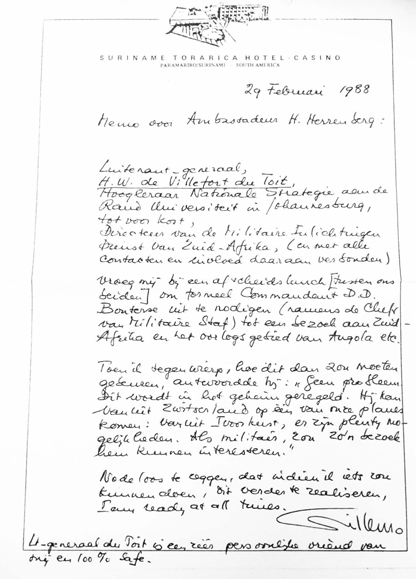 SURINAME TORARICA HOTEL - CASINO
PARAMARIBO/SURINAME SOUTH AMERICA
29 Februari 1988
Memo over Ambassadeur H. Herrenberg:
Luitenant-generaal,
H.W. de Villefort du Toit,
Hoogleraar Nationale Strategie aan de
Rand Universiteit in Johannesburg,
tot voor kort,
Directeur van de Militaire Inlichtingen
Dienst van Zuid-Afrika, (en met alle
contacten en invloed daaraan verbonden)
vroeg mij bij een afscheidslunch [tussen ons
beiden] om formeel Commandant D.D.
Bouterse uit te nodigen (namens de Chefs
van Militaire Staf) tot een bezoek aan Zuid-
Afrika en het oorlogsgebied van Angola etc.
Toen ik tegenwierp, hoe dit dan zou moeten
gebeuren, antwoordde hij: "Geen probleem.
Dit wordt in het geheim geregeld. Hij kan
vanuit Zwitserland op één van onze planes
komen: vanuit Ivoorkust, er zijn plenty mo-
gelijkheden. Als militair, zou zo'n bezoek
hem kunnen interesseren."
Nodeloos te zeggen, dat indien ik iets zou
kunnen doen, dit verder te realiseren,
I am ready at all times.
Willemo
Lt-generaal du Toit is een zéér persoonlijke vriend van
mij en 100% safe.